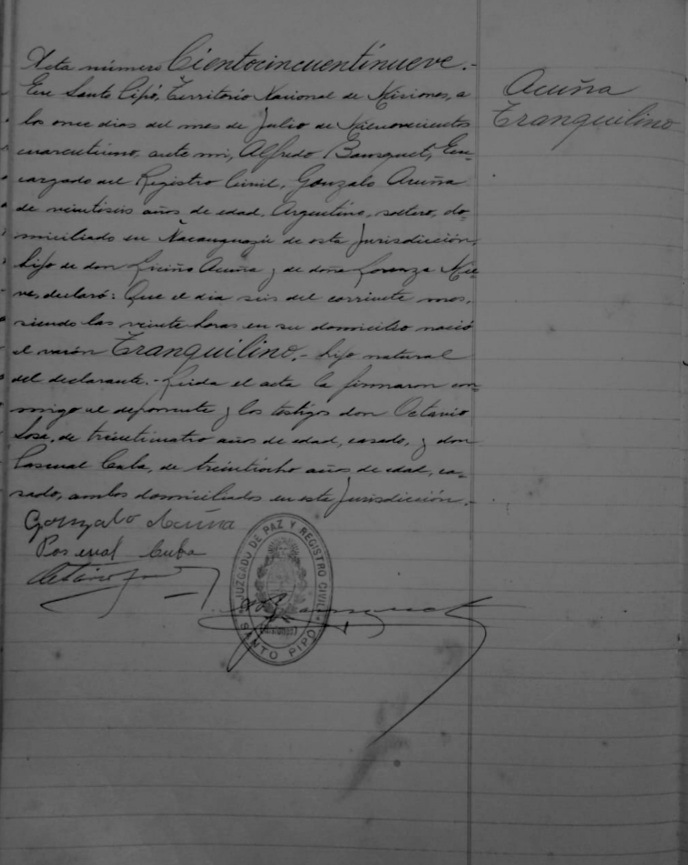 Acta número Cientocincuentinueve.-
En Santo Pipó, Territorio Nacional de Misiones, a
los once dias del mes de Julio de Mil novecientos
cuarentiuno, ante mi, Alfredo Bousquet, En-
cargado del Registro Civil, Gonzalo Acuña
de veintiseis años de edad, Argentino, soltero, do-
miciliado en Ñacanguazú de esta Jurisdicción,
hijo de don Liciño Acuña y de doña Lorenza
declaró: Que el dia seis del corriente mes,
siendo las veinte horas en su domicilio nació
el varón Tranquilino,- hijo natural
del declarante.- Leida el acta la firmaron con-
migo el deponente y los testigos don Octavio
José, de treinticuatro años de edad, casado, y don
Pascual Cuba, de treintiocho años de edad, ca-
sado, ambos domiciliados en esta Jurisdicción.-
Gonzalo Acuña
Pascual Cuba
JUZGADO DE PAZ Y REGISTRO CIVIL
(Misiones)
SANTO PIPÓ
Acuña
Tranquilino